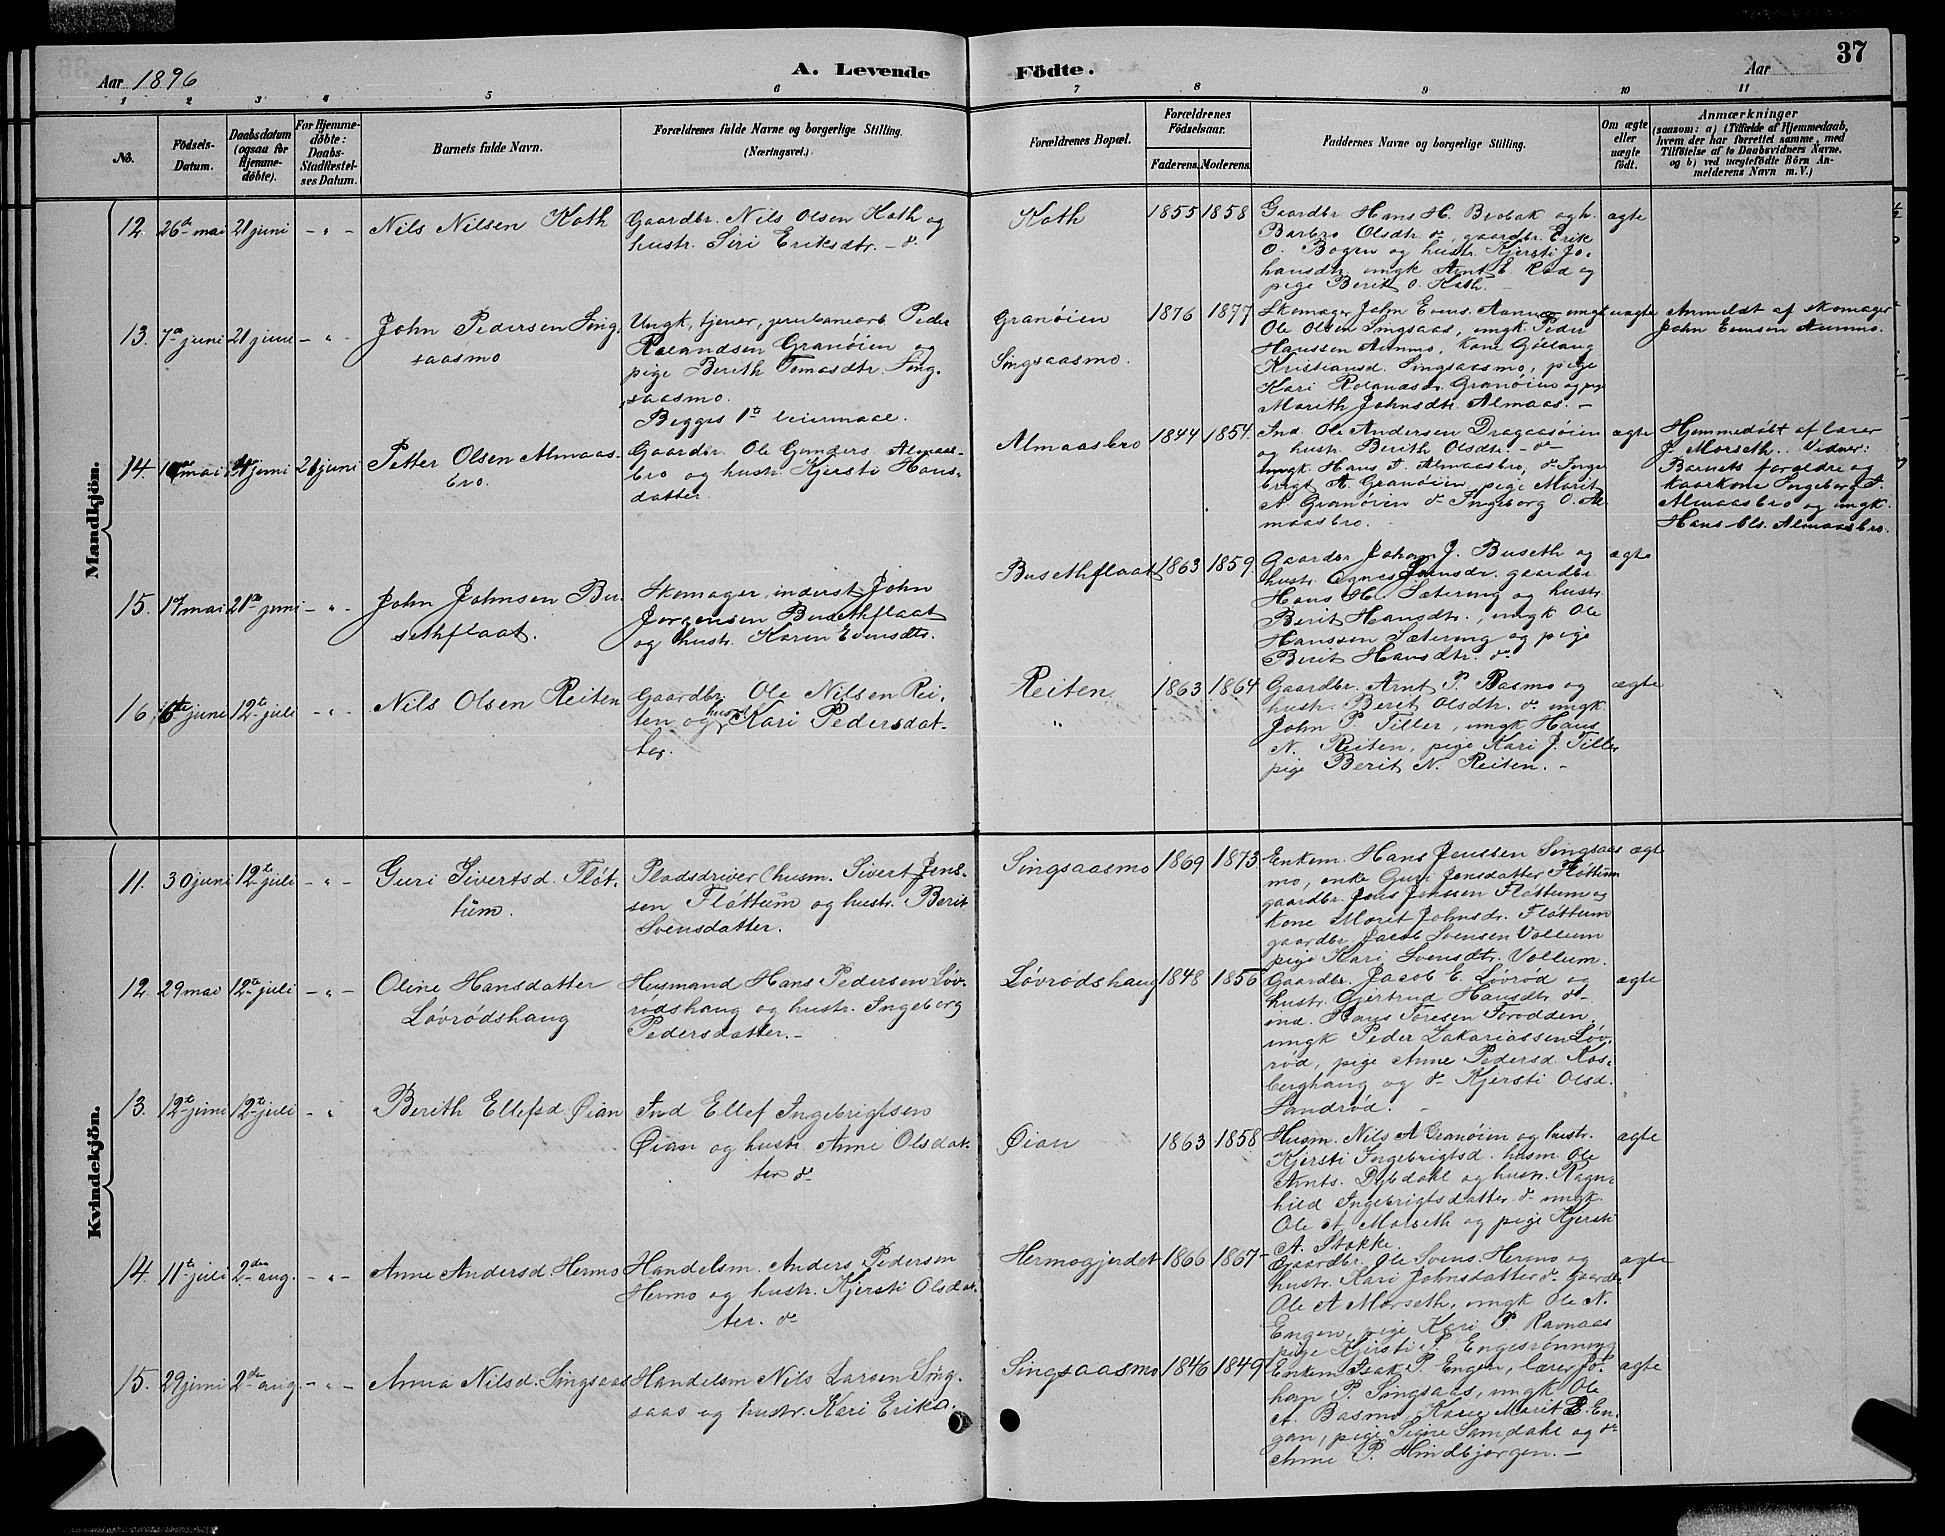 37
Aar 1896
A. Levende
Födte.
Aar
1 2 3 4 5 6 7 8 9 10 11
No.
Födsels-
Datum.
Daabsdatum
(ogsaa for
Hjemme-
döbte).
For Hjemme-
döbte:
Daabs-
Stadfæstel-
ses Datum.
Barnets fulde Navn.
Forældrenes fulde Navne og borgerlige Stilling.
(Næringsvei.)
Forældrenes Bopæl.
Forældrenes
Födselsaar.
Faderens.
Moderens.
Faddernes Navne og borgerlige Stilling.
Om ægte
eller
uægte
födt.
Anmærkninger
(saasom: a) i Tilfælde af Hjemmedaab,
hvem der har forrettet samme, med
Tilföielse af to Daabsvidners Navne.
og b) ved uægtefödte Börn An-
melderens Navn m. V.)
Mandkjön.
12. 26de mai 21 juni - " - Nils Nilsen Koth
Gaardbr. Nils Olsen Koth og
hustr. Siri Eriksdtr. - do
Koth 1855 1858
Gaardbr Hans H. Brobak og h.
Barbro Olsdtr do, gaardbr. Erik
O. Bogen og hustr. Kjersti Jo-
hansdtr. ungk Arnt E. Rød og
pige Berit O. Koth. -
ægte
13. 7de juni 21 juni - " - John Pedersen Sing-
saasmo
Ungk, tjener, jernbanearb Peder
Rolandsen Granøien og
pige Berith Tomasdtr. Sing-
saasmo.
Begges 1te leiermaal.
Granøien
Singsaasmo.
1876 1877
Skomager John Evens. Aunmo ungk
Ole Olsen Singsaas, ungk Peder
Hanssen Aunmo, kone Gøllaug
Kristiansd. Singsaasmo, pige
Kari Rolandsdr. Granøien og pige
Marith Johnsdtr. Almaas. -
uægte
Anmeldt af skomager
John Evensen Aunmo.
14. mai juni 21 juni Petter Olsen Almaas-
bro.
Gaardbr. Ole Gunders. Almaas-
bro og hustr. Kjersti Hans-
datter.
Almaasbro 1844 1854.
Ind. Ole Andersen Dragaasøien
og hustr. Berith Olsdtr. - do
ungk Hans T. Almaasbro, do Inge-
brigt A. Granøien, pige Marit
A. Granøien do Ingeborg O. Al-
maasbro.
ægte
Hjemmedøbt af lærer
J. Morseth. Vidner:
Barnets forældre og
kaarkone Ingeborg T.
Almaasbro og ungk.
Hans Ols. Almaasbro.
15. 17 mai 21de juni - " - John Johnsen Bu-
sethflaat.
Skomager, inderst John
Jørgensen Busethflaat
og hustr. Karen Evensdtr.
Busethflaat 1863 1859
Gaardbr Johan J. Buseth og
hustr. Agnes Jensdr. gaardbr.
Hans H. Sætering og hustr
Berit Hansdtr., ungk Ole
Hanssen Sætering og pige
Berit Hansdtr. do
ægte
16. 6te juni 12te juli - " - Nils Olsen Reiten
Gaardbr. Ole Nilsen Rei-
ten og hustr Kari Pedersdat-
ter.
Reiten 1863 1864
"
Gaardbr. Arnt P. Basmo og
hustr. Beret Olsdtr. do ungk
John P. Tiller, ungk Hans
N. Reiten, pige Kari J. Tiller
pige Berit N. Reiten. -
ægte
Kvindekjön.
11. 30 juni 12te juli - " - Guri Sivertsd. Fløt-
tum.
Pladsdriver (husm. Sivert Jens-
sen Fløttum og hustr. Berit
Svensdatter.
Singsaasmo 1869 1873
Enkem. Hans Jenssen Singsaas
mo, enke Guri Jensdatter Fløttum
gaardbr. Jens Jenssen Fløttum og
kone Marit Johnsdr. Fløttum
gaardbr Jacob Svensen Vollum
pige Kari Svensdtr. Vollum.
ægte
12. 29 mai 12te juli - " - Oline Hansdatter
Løvrødshaug
Husmand Hans Pedersen Løv-
rødshaug og hustr. Ingeborg
Pedersdatter. -
Løvrødshaug 1848 1856
Gaardbr. Jacob E. Løvrød og
hustr. Gjertrud Hansdtr. do -
ind. Hans Toresen Forodden
ungk Peder Zakariassen Løv-
rød, pige Anne Pedersd. Kos-
berghaug og do Kjersti Olsd.
Sandrød. -
ægte
13. 12te juni 12te juli - " Berith Ellefsd. Øian
Ind Ellef Ingebrigtsen
Øian og hustr. Anne Olsdat-
ter do
Øian 1863 1858
Husm. Nils A Granøien og hustr.
Kjersti Ingebrigtsd. husm. Ole
Arnts. Dybdahl og hustr. Ragn-
hild Ingebrigtsdatter do ungk.
Ole A. Morseth og pige Kjersti
A. Stokke.
ægte
14. 11te juli 2den aug. - " - Anne Andersd. Hermo
Handelsm. Anders Pedersen
Hermo og hustr. Kjersti Olsdat-
ter. do
Hermogjerdet 1866 1867
Gaardbr. Ole Svens. Hermo og
hustr. Kari Johnsdatter do. Gaardbr
Ole A Morseth, ungk Ole N.
Engen, pige Kari P. Ramaas
pige Kjersti P. Engesrønning
ægte
15. 29 juni 2den aug. - " - Anna Nilsd. Singsaas
Handelsm Nils Larsen Sing-
saas og hustr. Kari Eriksd.
Singsaasmo 1846 1849
Enkem Isak P. Engen, lærer Jo-
han P. Singsaas, ungk Ole
A. Basmo, Kone Marit E. En-
gan, pige Signe Samdahl og do
Anne P. Hindbjørgen. -
ægte